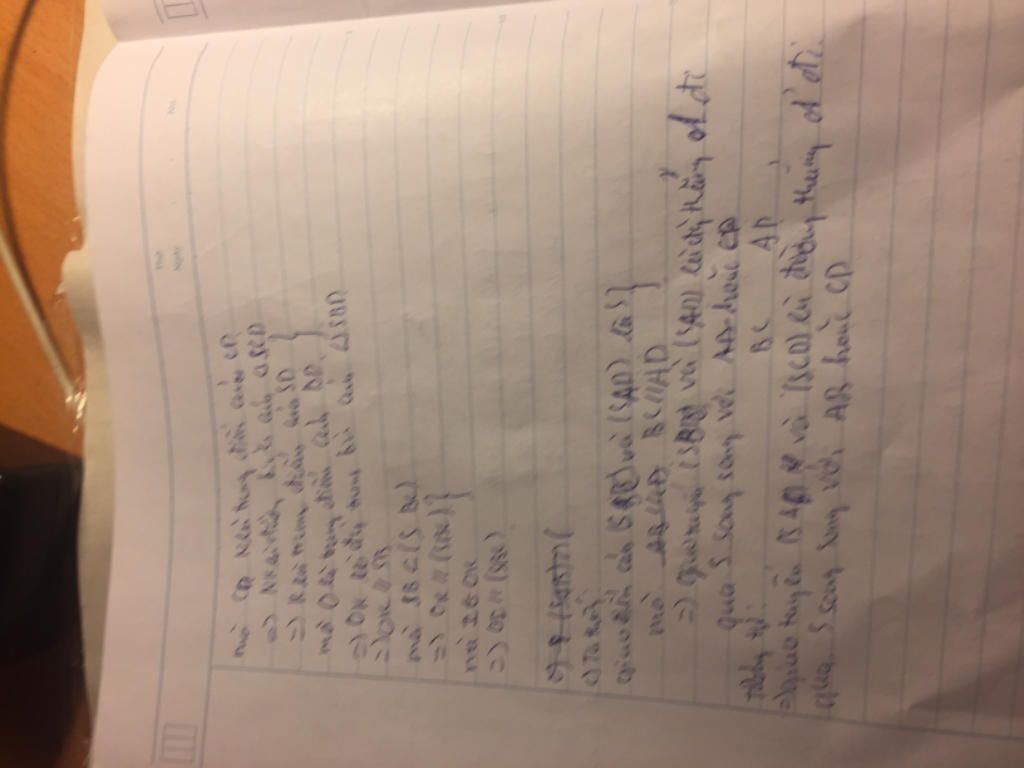 Thứ
Ngày
No.
mà CD N là trung điểm của CD
=> NK là đường trung bình của ΔSCD
=> K là trung điểm của SD }
mà O là trung điểm của BD }
=> OK là đường trung bình của ΔSBD
=> OK // SB
mà SB ⊂ (SBC)
=> OK // (SBC) }
mà I ∈ OK
=> OI // (SBC)
c) Ta thấy
giao điểm của (SBC) và (SAD) là S }
mà AB//CD BC//AD }
=> giao tuyến (SBC) và (SAD) là đường thẳng d đi
qua S song song với AD hoặc CD
BC AD
tương tự:
=> giao tuyến (SAB) và (SCD) là đường thẳng d' đi
qua S song song với AB hoặc CD